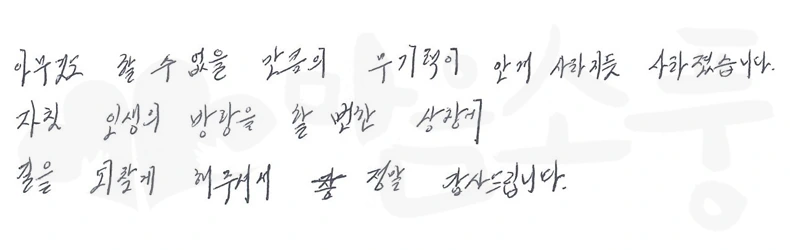 아무것도 할 수 없을 만큼의 무기력이 안개 사라지듯 사라졌습니다.
자칫 인생의 방랑을 할 뻔한 상황에
길을 되찾게 해주셔서 정말 감사드립니다.
맑은소풍